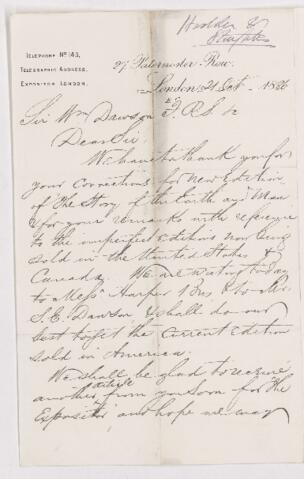 Hodder &
Stoughton
TELEPHONE No 143,
TELEGRAPHIC ADDRESS,
EXPOSITOR LONDON.
27 Paternoster Row.
London, 21 Oct 1886
Sir Wm Dawson F.R.S. &c
Dear Sir,
We have to thank you for
your corrections for new Edition
of The Story of the Earth and Man
& for your remarks with reference
to the imperfect editions now being
sold in the United States &
Canada. We are writing today
to Messrs Harper & Bros & to Mr
S. E. Dawson & shall do our
best to get the current edition
sold in America.
We shall be glad to receive
another article from you soon for the
Expositor, and hope we may